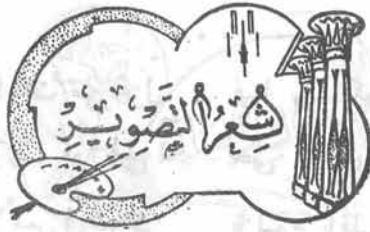 شِعرُ التَّصوِيرِ